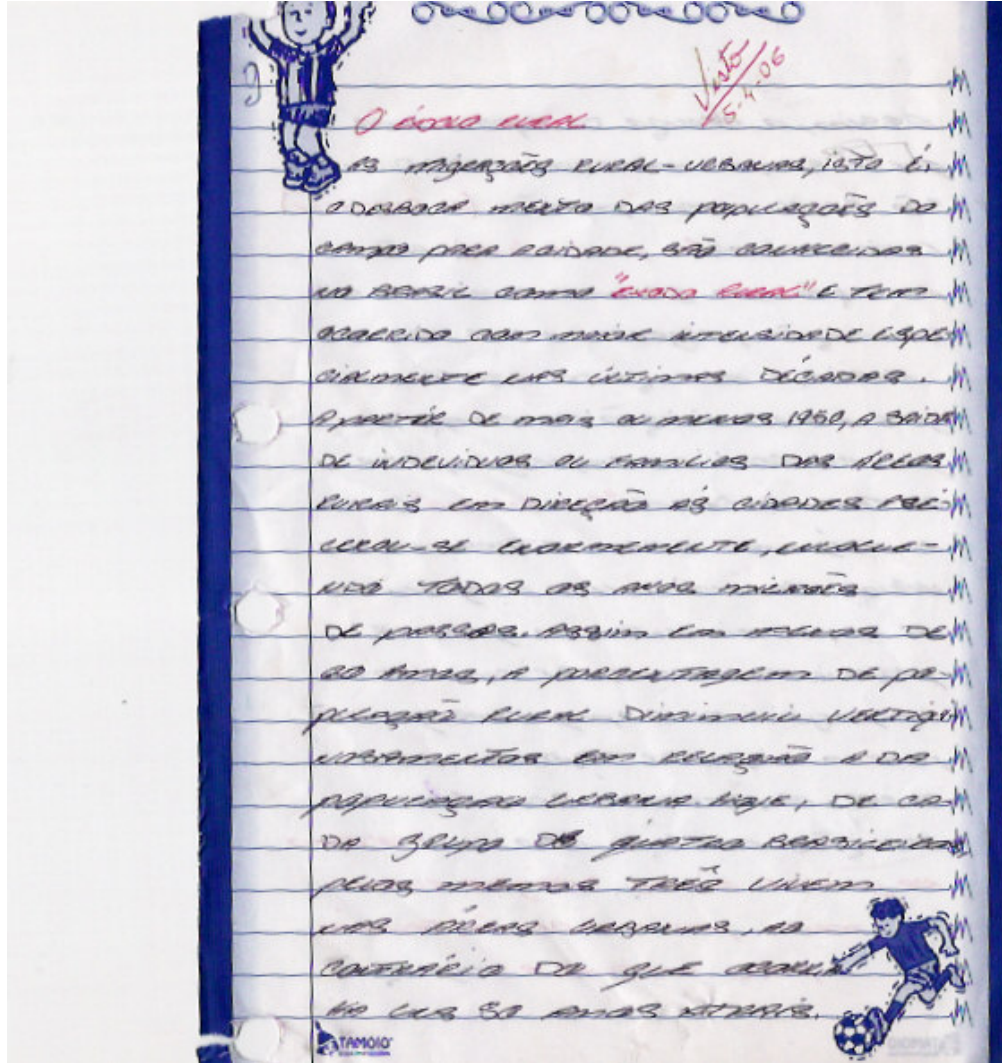 Visto
5-4-06
O êxodo rural
As migrações rural-urbanas, isto é,
o desboca mento das populações do
campo para acidade, são counhecidas
no Brasil como "êxodo rural" e tem
ocorrido com maior intensidade espe-
cialmente nas últimas décadas.
A partir de mais ou menos 1950, a saída
de indevíduos ou famílias das áreas
rurais em direção às cidades
-se enormemente,
todos os anos milhões
de pessoas. Assim em menos de
anos, a porcentagem de po-
pulação rural diminuiu
em relação a da
população urbana hoje, de ca-
da grupo de quatro brasileiros
pelos menos três vivem
nas áreas urbanas, ao
contrário do que
há uns 50 anos atrás.
TAMOIO